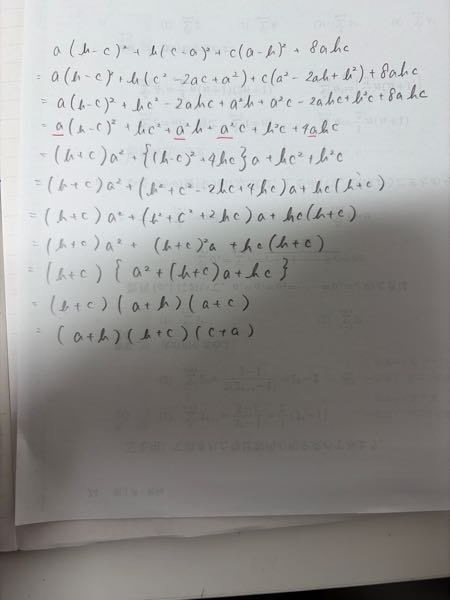 a(b-c)² + b(c-a)² + c(a-b)² + 8abc
= a(b-c)² + b(c² - 2ac + a²) + c(a² - 2ab + b²) + 8abc
= a(b-c)² + bc² - 2abc + a²b + a²c - 2abc + b²c + 8abc
= a(b-c)² + bc² + a²b + a²c + b²c + 4abc
= (b+c)a² + {(b-c)² + 4bc}a + bc² + b²c
= (b+c)a² + (b² + c² - 2bc + 4bc)a + bc(b+c)
= (b+c)a² + (b² + c² + 2bc)a + bc(b+c)
= (b+c)a² + (b+c)²a + bc(b+c)
= (b+c){a² + (b+c)a + bc}
= (b+c)(a+b)(a+c)
= (a+b)(b+c)(c+a)